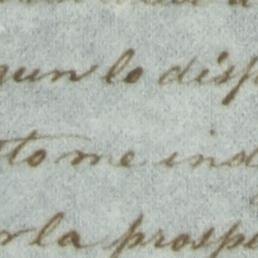 gun lo disp
tto me ind
r la prospe